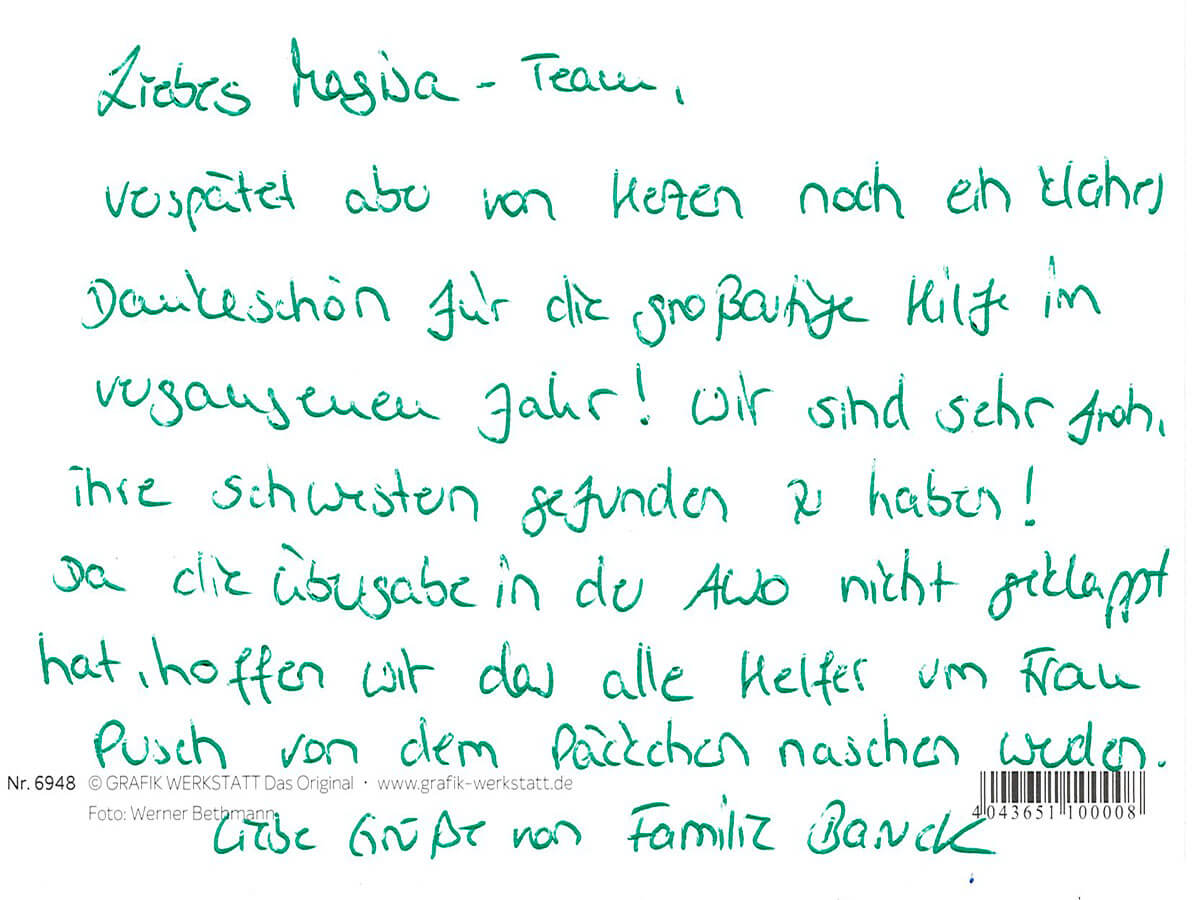 Liebes Magisa - Team,
verspätet aber von Herzen noch ein kleines
Dankeschön für die großartige Hilfe im
vergangenen Jahr! Wir sind sehr froh,
ihre Schwestern gefunden zu haben!
Da die Übergabe in der AWO nicht geklappt
hat, hoffen wir das alle Helfer um Frau
Pusch von dem Päckchen naschen werden.
Nr. 6948 © GRAFIK WERKSTATT Das Original · www.grafik-werkstatt.de
Foto: Werner Bethmann
4 043651 100008
Liebe Grüße von Familie